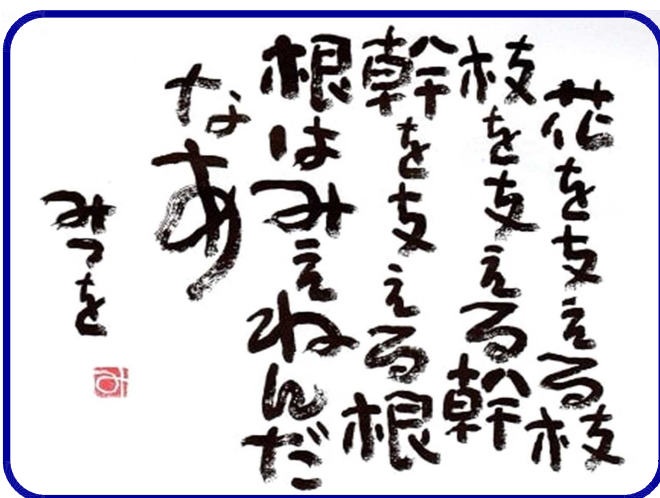 花を支える枝
枝を支える幹
幹を支える根
根はみえねんだ
なあ
みつを
み